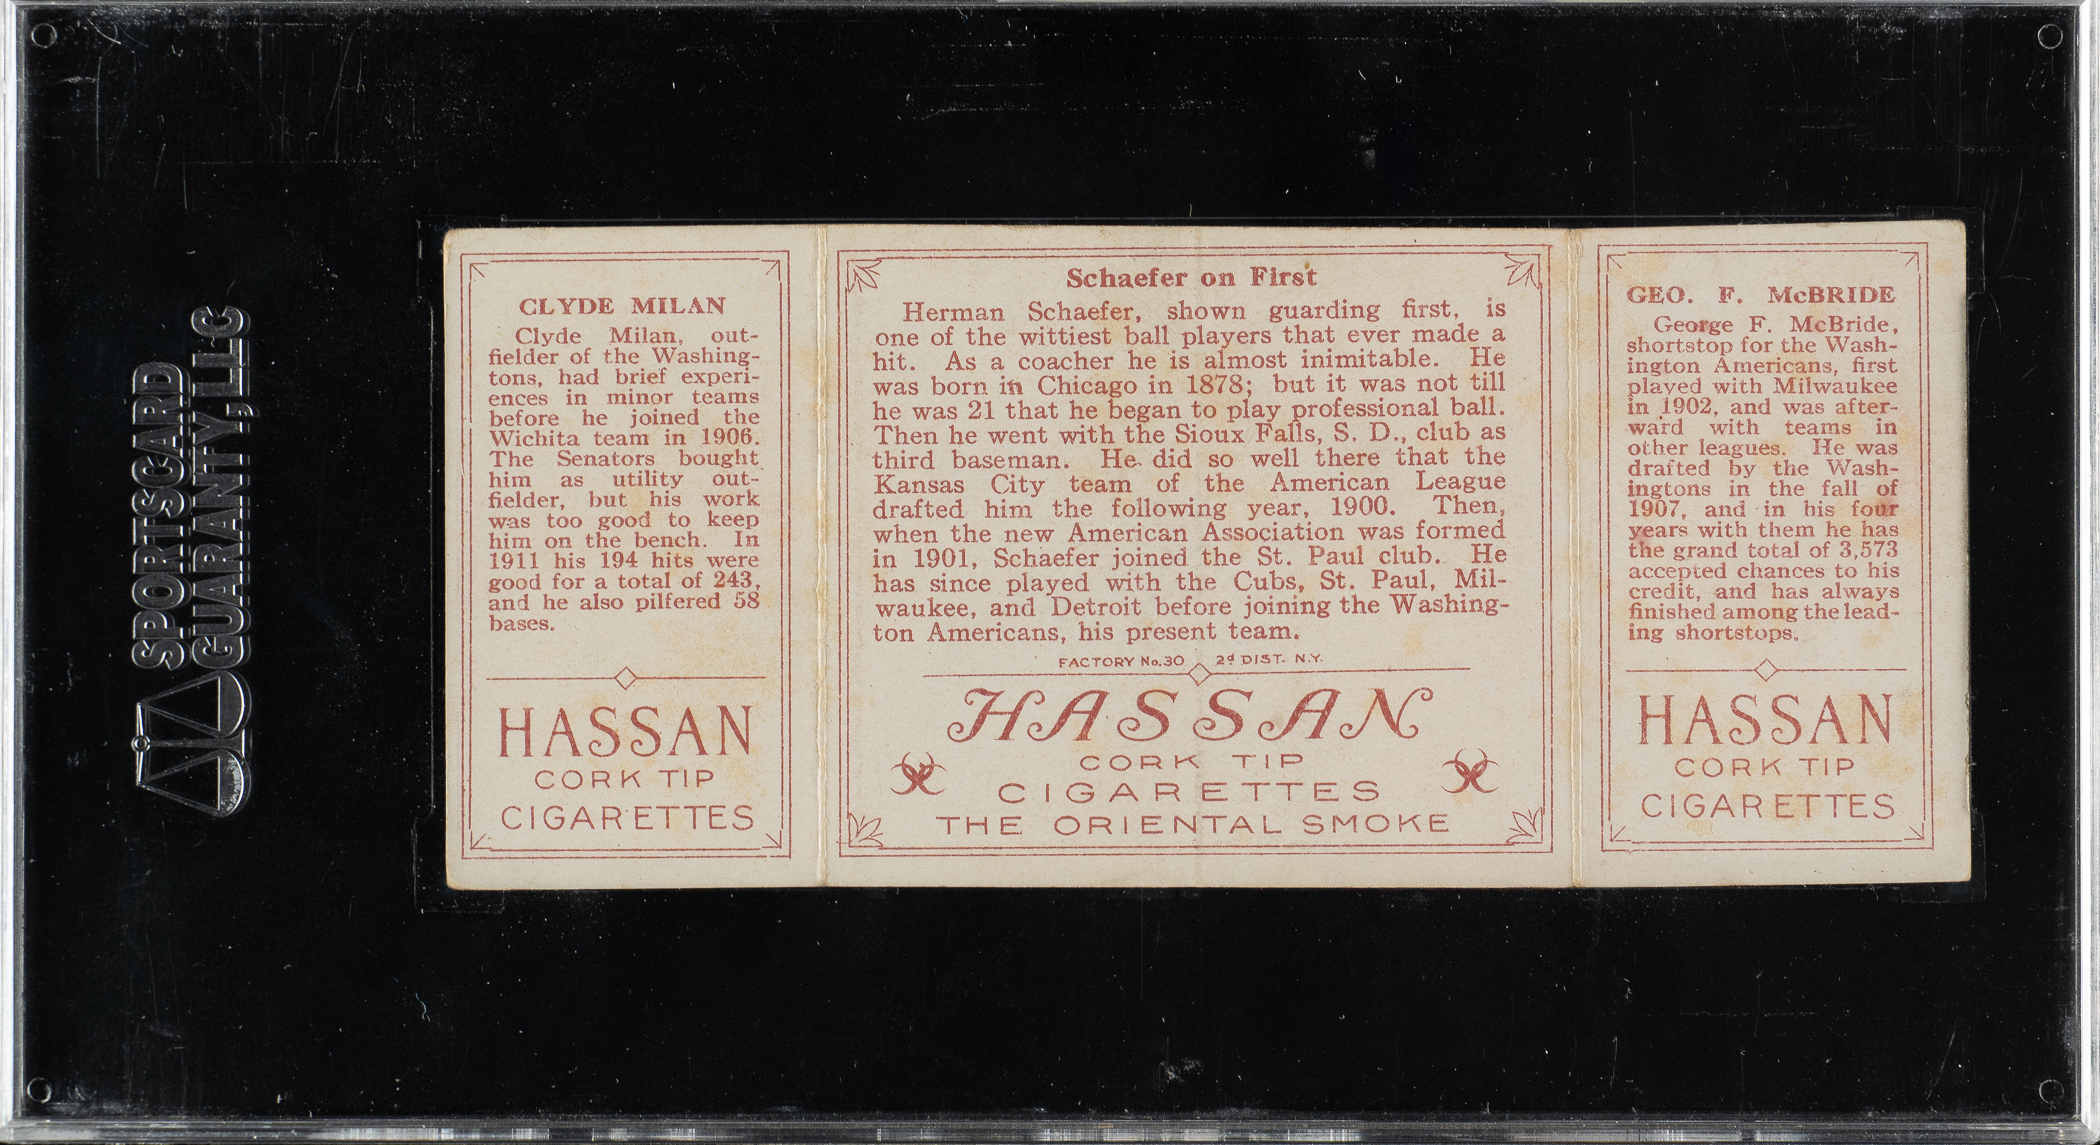 SPORTSCARD
GUARANTY, LLC
CLYDE MILAN
Clyde Milan, out-
fielder of the Washing-
tons, had brief experi-
ences in minor teams
before he joined the
Wichita team in 1906.
The Senators bought
him as utility out-
fielder, but his work
was too good to keep
him on the bench. In
1911 his 194 hits were
good for a total of 243,
and he also pilfered 58
bases.
HASSAN
CORK TIP
CIGARETTES
Schaefer on First
Herman Schaefer, shown guarding first, is
one of the wittiest ball players that ever made a
hit. As a coacher he is almost inimitable. He
was born in Chicago in 1878; but it was not till
he was 21 that he began to play professional ball.
Then he went with the Sioux Falls, S. D., club as
third baseman. He did so well there that the
Kansas City team of the American League
drafted him the following year, 1900. Then,
when the new American Association was formed
in 1901, Schaefer joined the St. Paul club. He
has since played with the Cubs, St. Paul, Mil-
waukee, and Detroit before joining the Washing-
ton Americans, his present team.
FACTORY No. 30 2d DIST. N.Y.
HASSAN
CORK TIP
CIGARETTES
THE ORIENTAL SMOKE
GEO. F. McBRIDE
George F. McBride,
shortstop for the Wash-
ington Americans, first
played with Milwaukee
in 1902, and was after-
ward with teams in
other leagues. He was
drafted by the Wash-
ingtons in the fall of
1907, and in his four
years with them he has
the grand total of 3,573
accepted chances to his
credit, and has always
finished among the lead-
ing shortstops.
HASSAN
CORK TIP
CIGARETTES